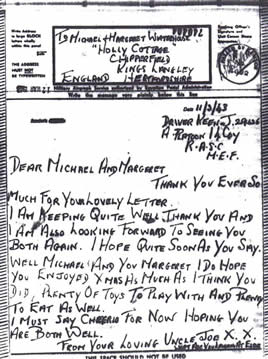 Write Address
in large BLOCK
letters wholly
within this panel
THE ADDRESS
MUST NOT
BE TYPEWRITTEN
To MICHAEL & MARGARET WHITEHOUSE
"HOLLY COTTAGE"
CHIPPERFIELD
KINGS LANGLEY
ENGLAND HERTFORDSHIRE
Write the message very plainly below this line
Date 11/3/43
DRIVER KEEN J.
A PLATOON Coy
R.A.S.C
M.E.F.
DEAR MICHAEL AND MARGARET
THANK YOU EVER SO
MUCH FOR YOUR LOVELY LETTER.
I AM KEEPING QUITE WELL THANK YOU AND
I AM ALSO LOOKING FORWARD TO SEEING YOU
BOTH AGAIN. I HOPE QUITE SOON AS YOU SAY.
WELL MICHAEL AND YOU MARGARET I DO HOPE
YOU ENJOYED XMAS AS MUCH AS I THINK YOU
DID, PLENTY OF TOYS TO PLAY WITH AND PLENTY
TO EAT AS WELL.
I MUST SAY CHEERIO FOR NOW HOPING YOU
ARE BOTH WELL.
FROM YOUR LOVING UNCLE JOE X. X.
THIS SPACE SHOULD NOT BE USED